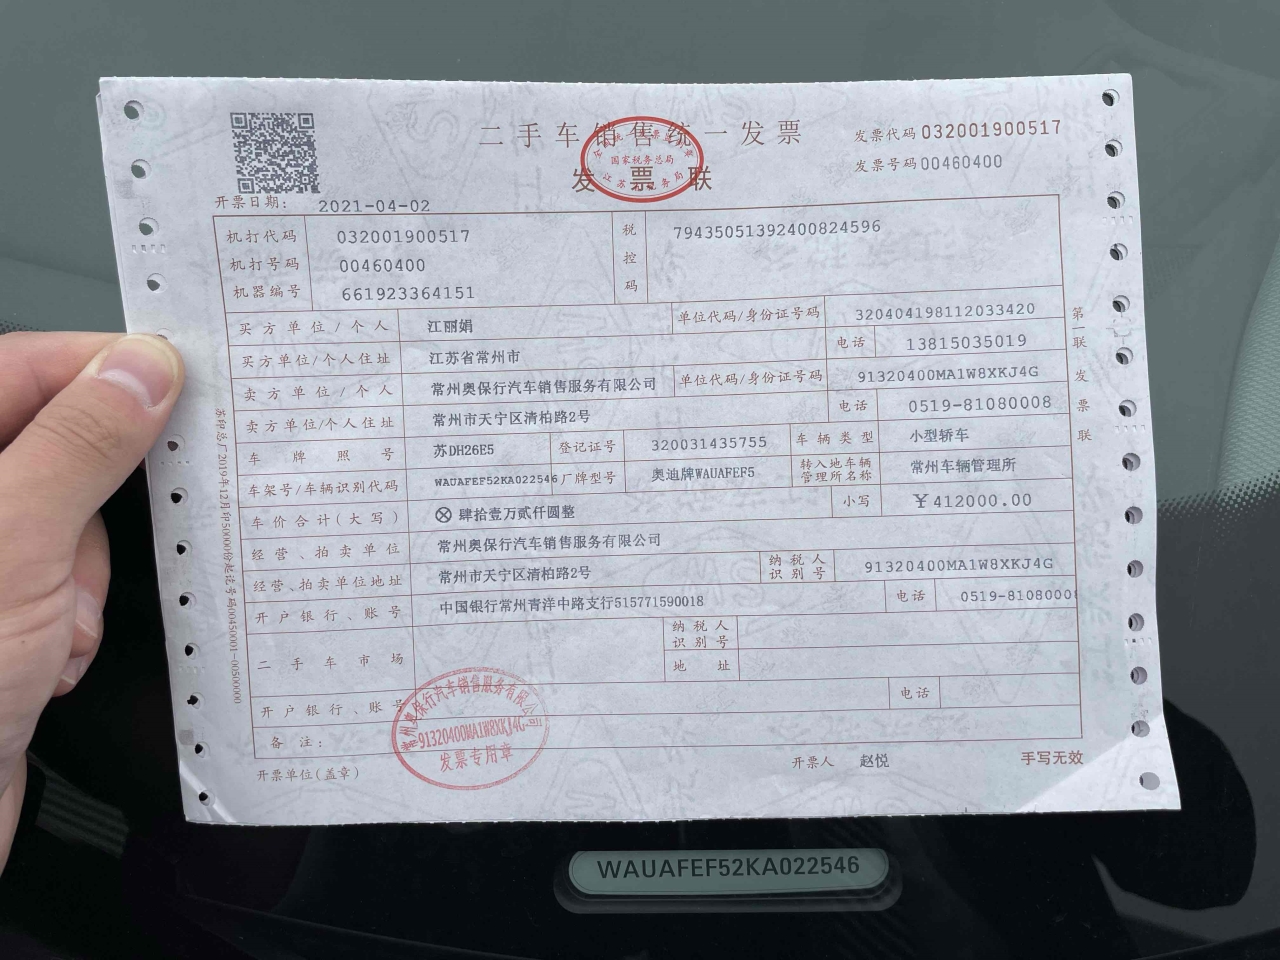 二手车销售统一发票
发票联
国家税务总局
发票代码 032001900517
发票号码 00460400
开票日期: 2021-04-02
机打代码 032001900517
机打号码 00460400
机器编号 661923364151
税控码 79435051392400824596
买方单位/个人 江丽娟 单位代码/身份证号码 320404198112033420
买方单位/个人住址 江苏省常州市 电话 13815035019
卖方单位/个人 常州奥保行汽车销售服务有限公司 单位代码/身份证号码 91320400MA1W8XKJ4G
卖方单位/个人住址 常州市天宁区清柏路2号 电话 0519-81080008
车牌照号 苏DH26E5 登记证号 320031435755 车辆类型 小型轿车
车架号/车辆识别代码 WAUAFEF52KA022546 厂牌型号 奥迪牌WAUAFEF5 转入地车辆管理所名称 常州车辆管理所
车价合计(大写) ⊗ 肆拾壹万贰仟圆整 小写 ￥412000.00
经营、拍卖单位 常州奥保行汽车销售服务有限公司
经营、拍卖单位地址 常州市天宁区清柏路2号 纳税人识别号 91320400MA1W8XKJ4G
开户银行、账号 中国银行常州青洋中路支行515771590018 电话 0519-8108000
二手车市场 纳税人识别号
地址
开户银行、账号 电话
备注:
开票单位(盖章) 开票人 赵悦 手写无效
常州奥保行汽车销售服务有限公司
91320400MA1W8XKJ4G
发票专用章
第一联 发票联
WAUAFEF52KA022546